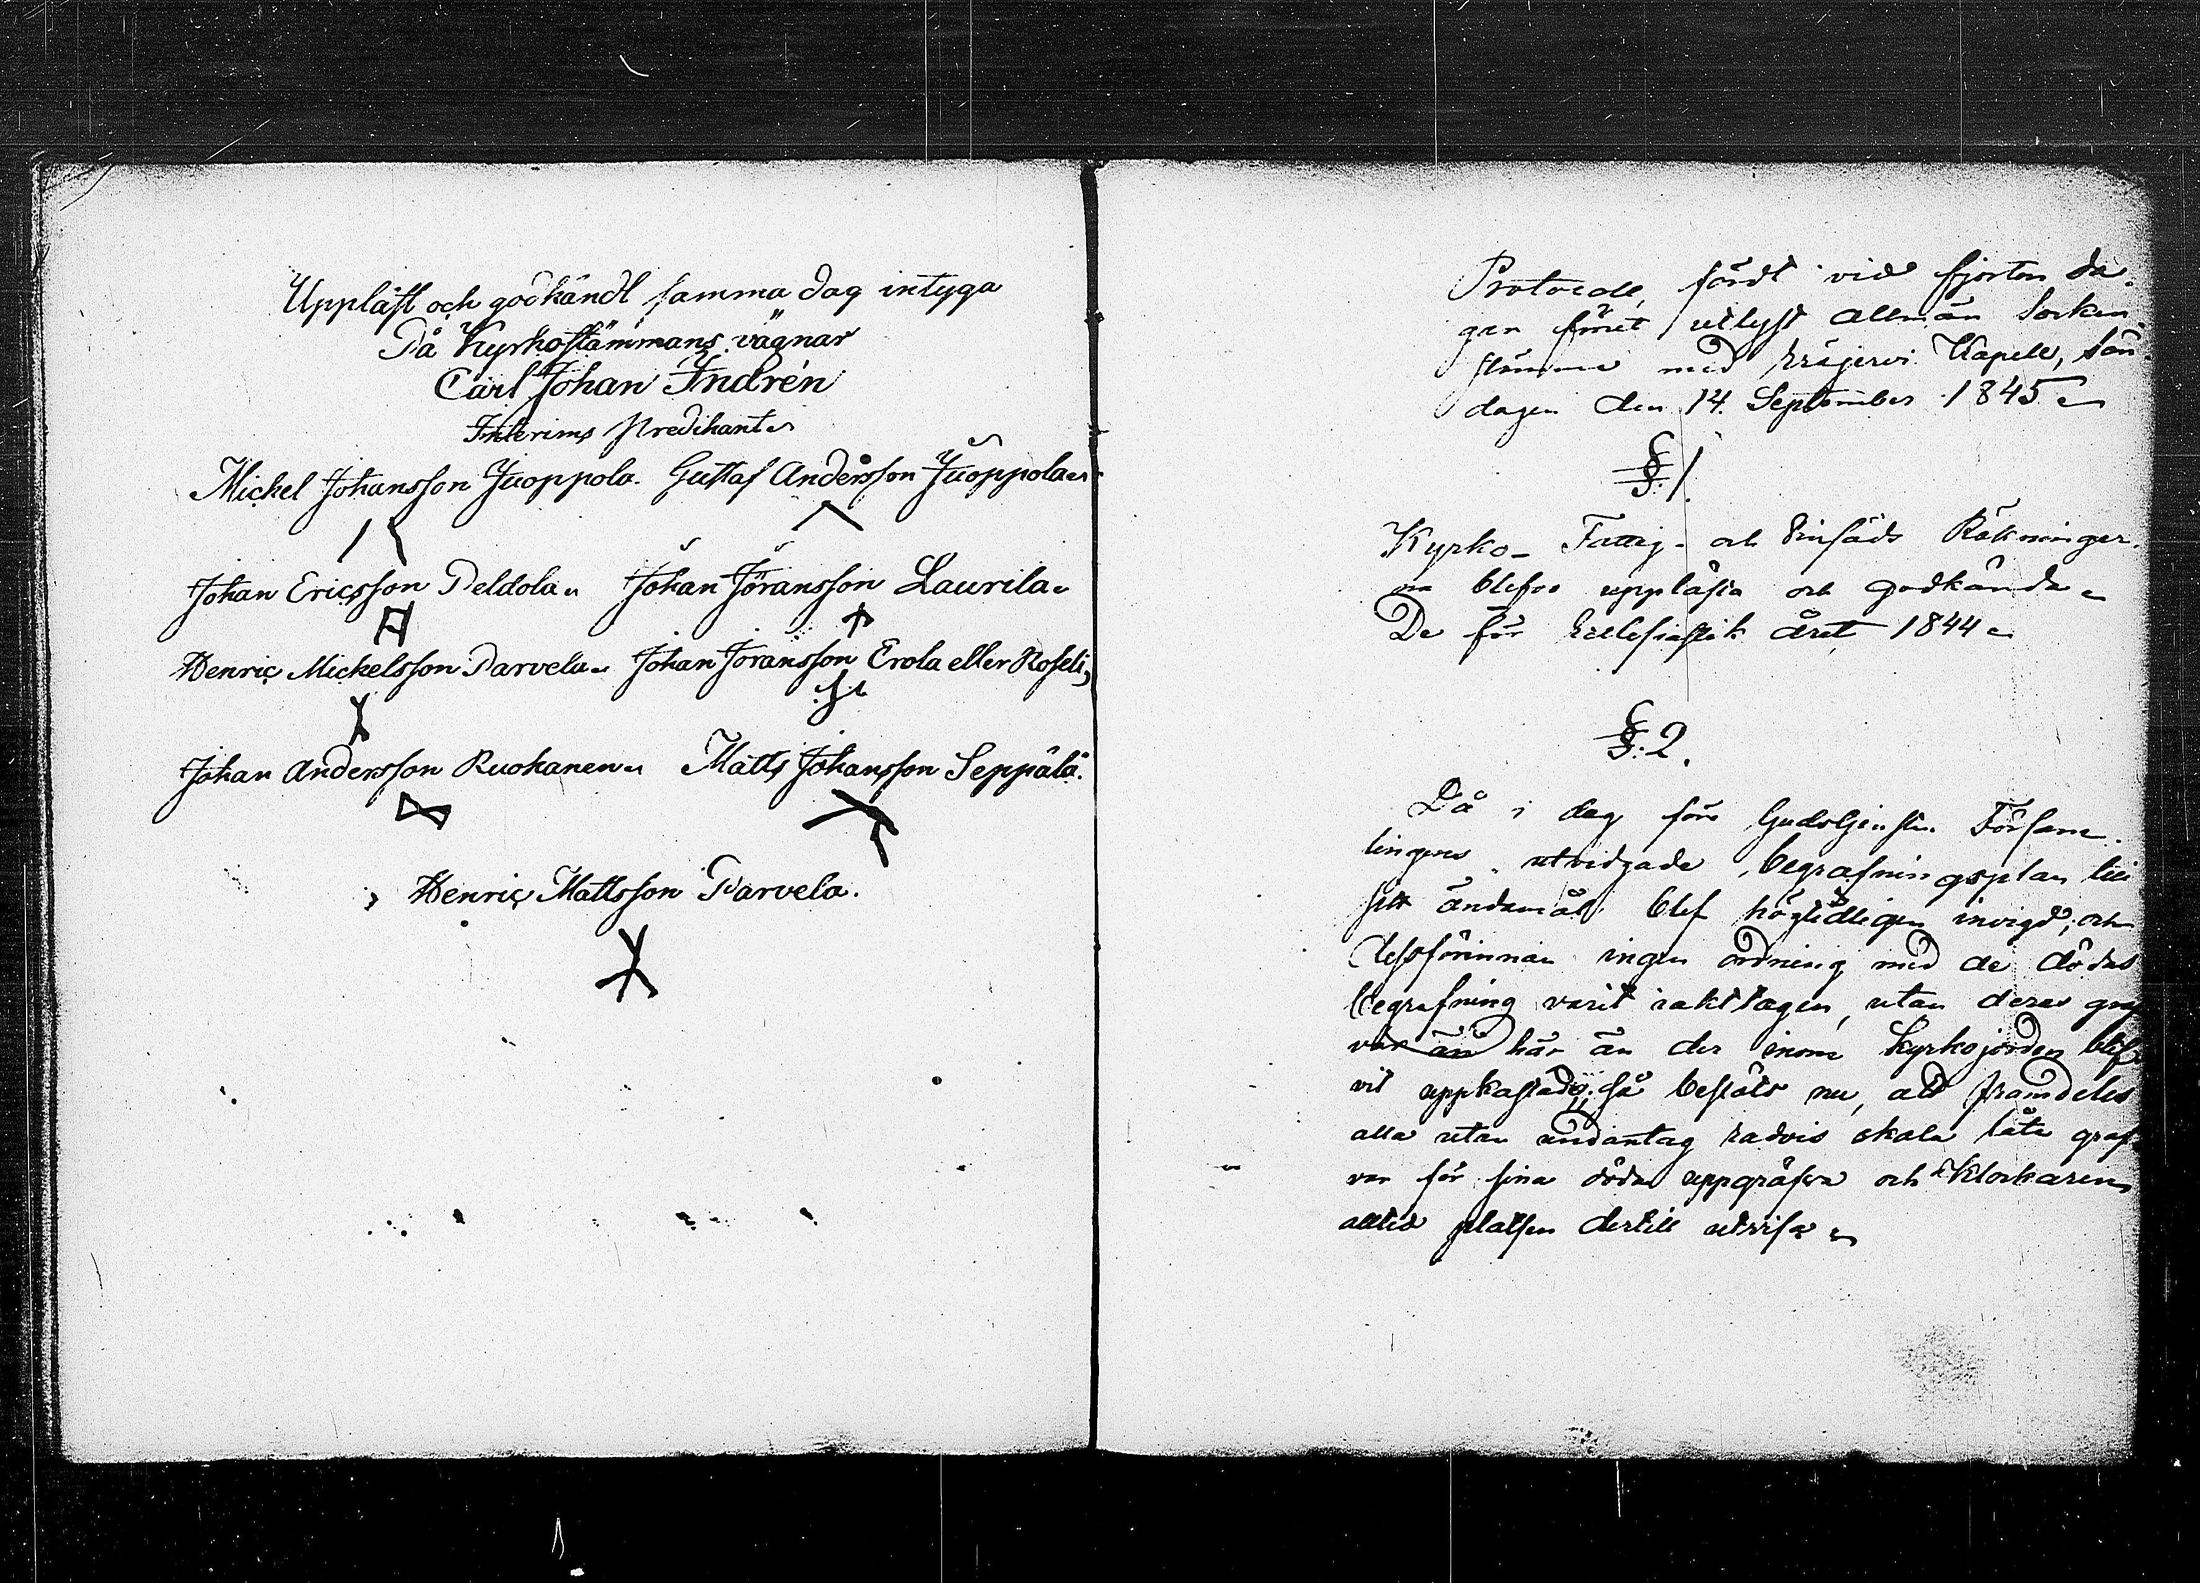 Uppläst och godkändt samma dag intyga
På Kyrkostämmans vägnar
Carl Johan Indrén
Interims Predikant
Mickel Johansson Juoppola. Gustaf Andersson Juoppola
Johan Ericsson Peldola Johan Jöransson Laurila
Henric Mickelsson Parvela Johan Jöransson Erola eller Roseli,
Johan Andersson Ruohanen Matts Johansson Seppälä.
Henric Mattsson Parvela.
Protocoll, fördt vid fjorton da-
gar förut utlyst allmän Socken
stämma med Kapell, Sön-
dagen den 14 September 1845
§. 1.
Kyrko- Fattig- och Räkninger-
na blefvo upplästa och godkända
De för Ecclesiastik året 1844
§. 2.
Då i dag före Gudstjensten Försam-
lingens utvidgade begrafningsplan till
sitt ändamål blef högtidligen invigd; och
dessförinnan ingen ordning med de dödas
begrafning varit iakttagen, utan deras graf
var än här än der inom Kyrkojorden blif-
vit uppkastade; så beslöts nu, att framdeles
alla utan undantag radvis skola låta graf-
var för sina döda uppgräfva och Klockaren
alltid platsen dertill utvisa